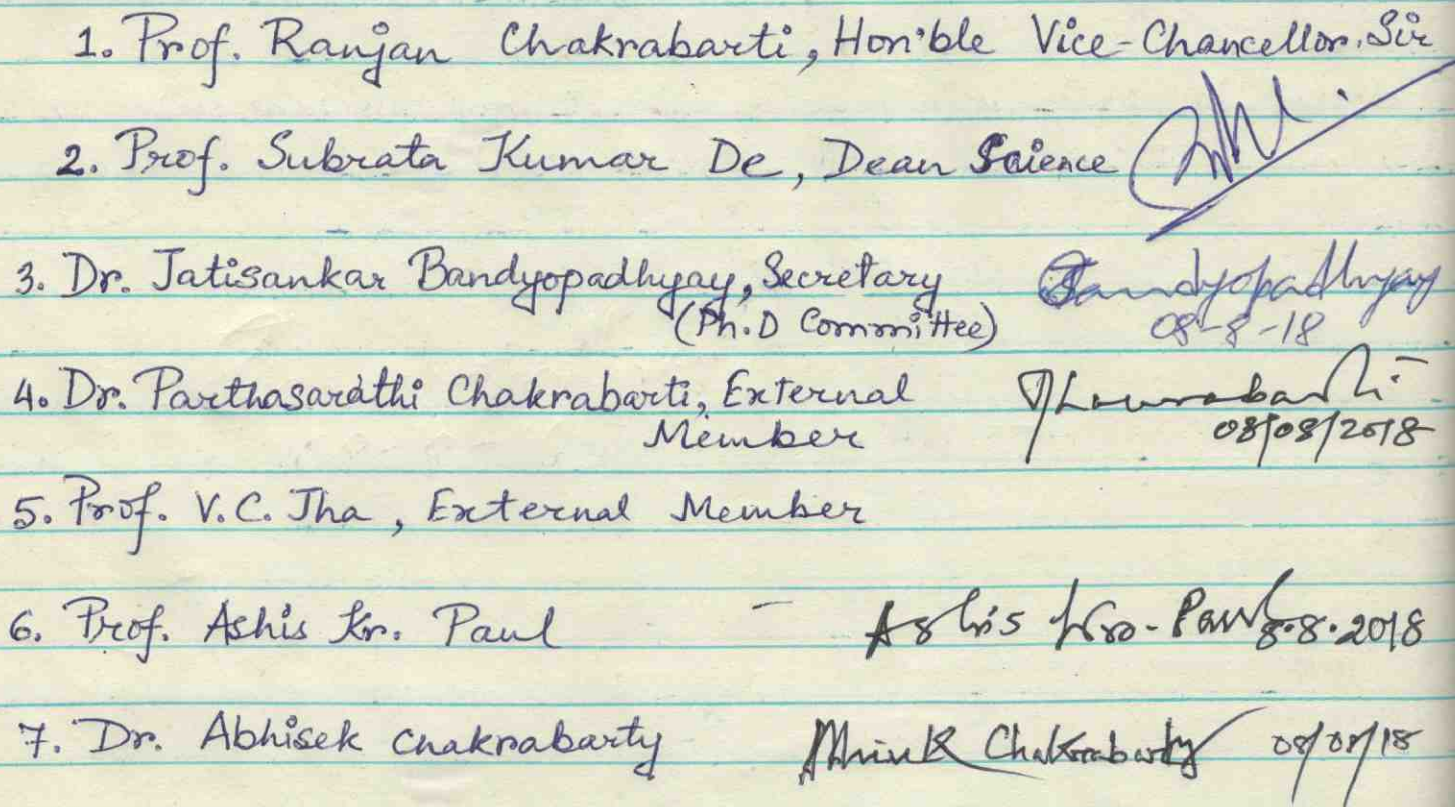 1. Prof. Ranjan Chakrabarti, Hon'ble Vice-Chancellor. Sir
2. Prof. Subrata Kumar De, Dean Science
3. Dr. Jatisankar Bandyopadhyay, Secretary Bandyopadhyay
(Ph.D Committee) 08-8-18
4. Dr. Parthasarathi Chakrabarti, External
Member 08/08/2018
5. Prof. V.C. Jha, External Member
6. Prof. Ashis Kr. Paul - Ashis Kr. Paul 8.8.2018
7. Dr. Abhisek Chakrabarty Chakrabarty 08/08/18